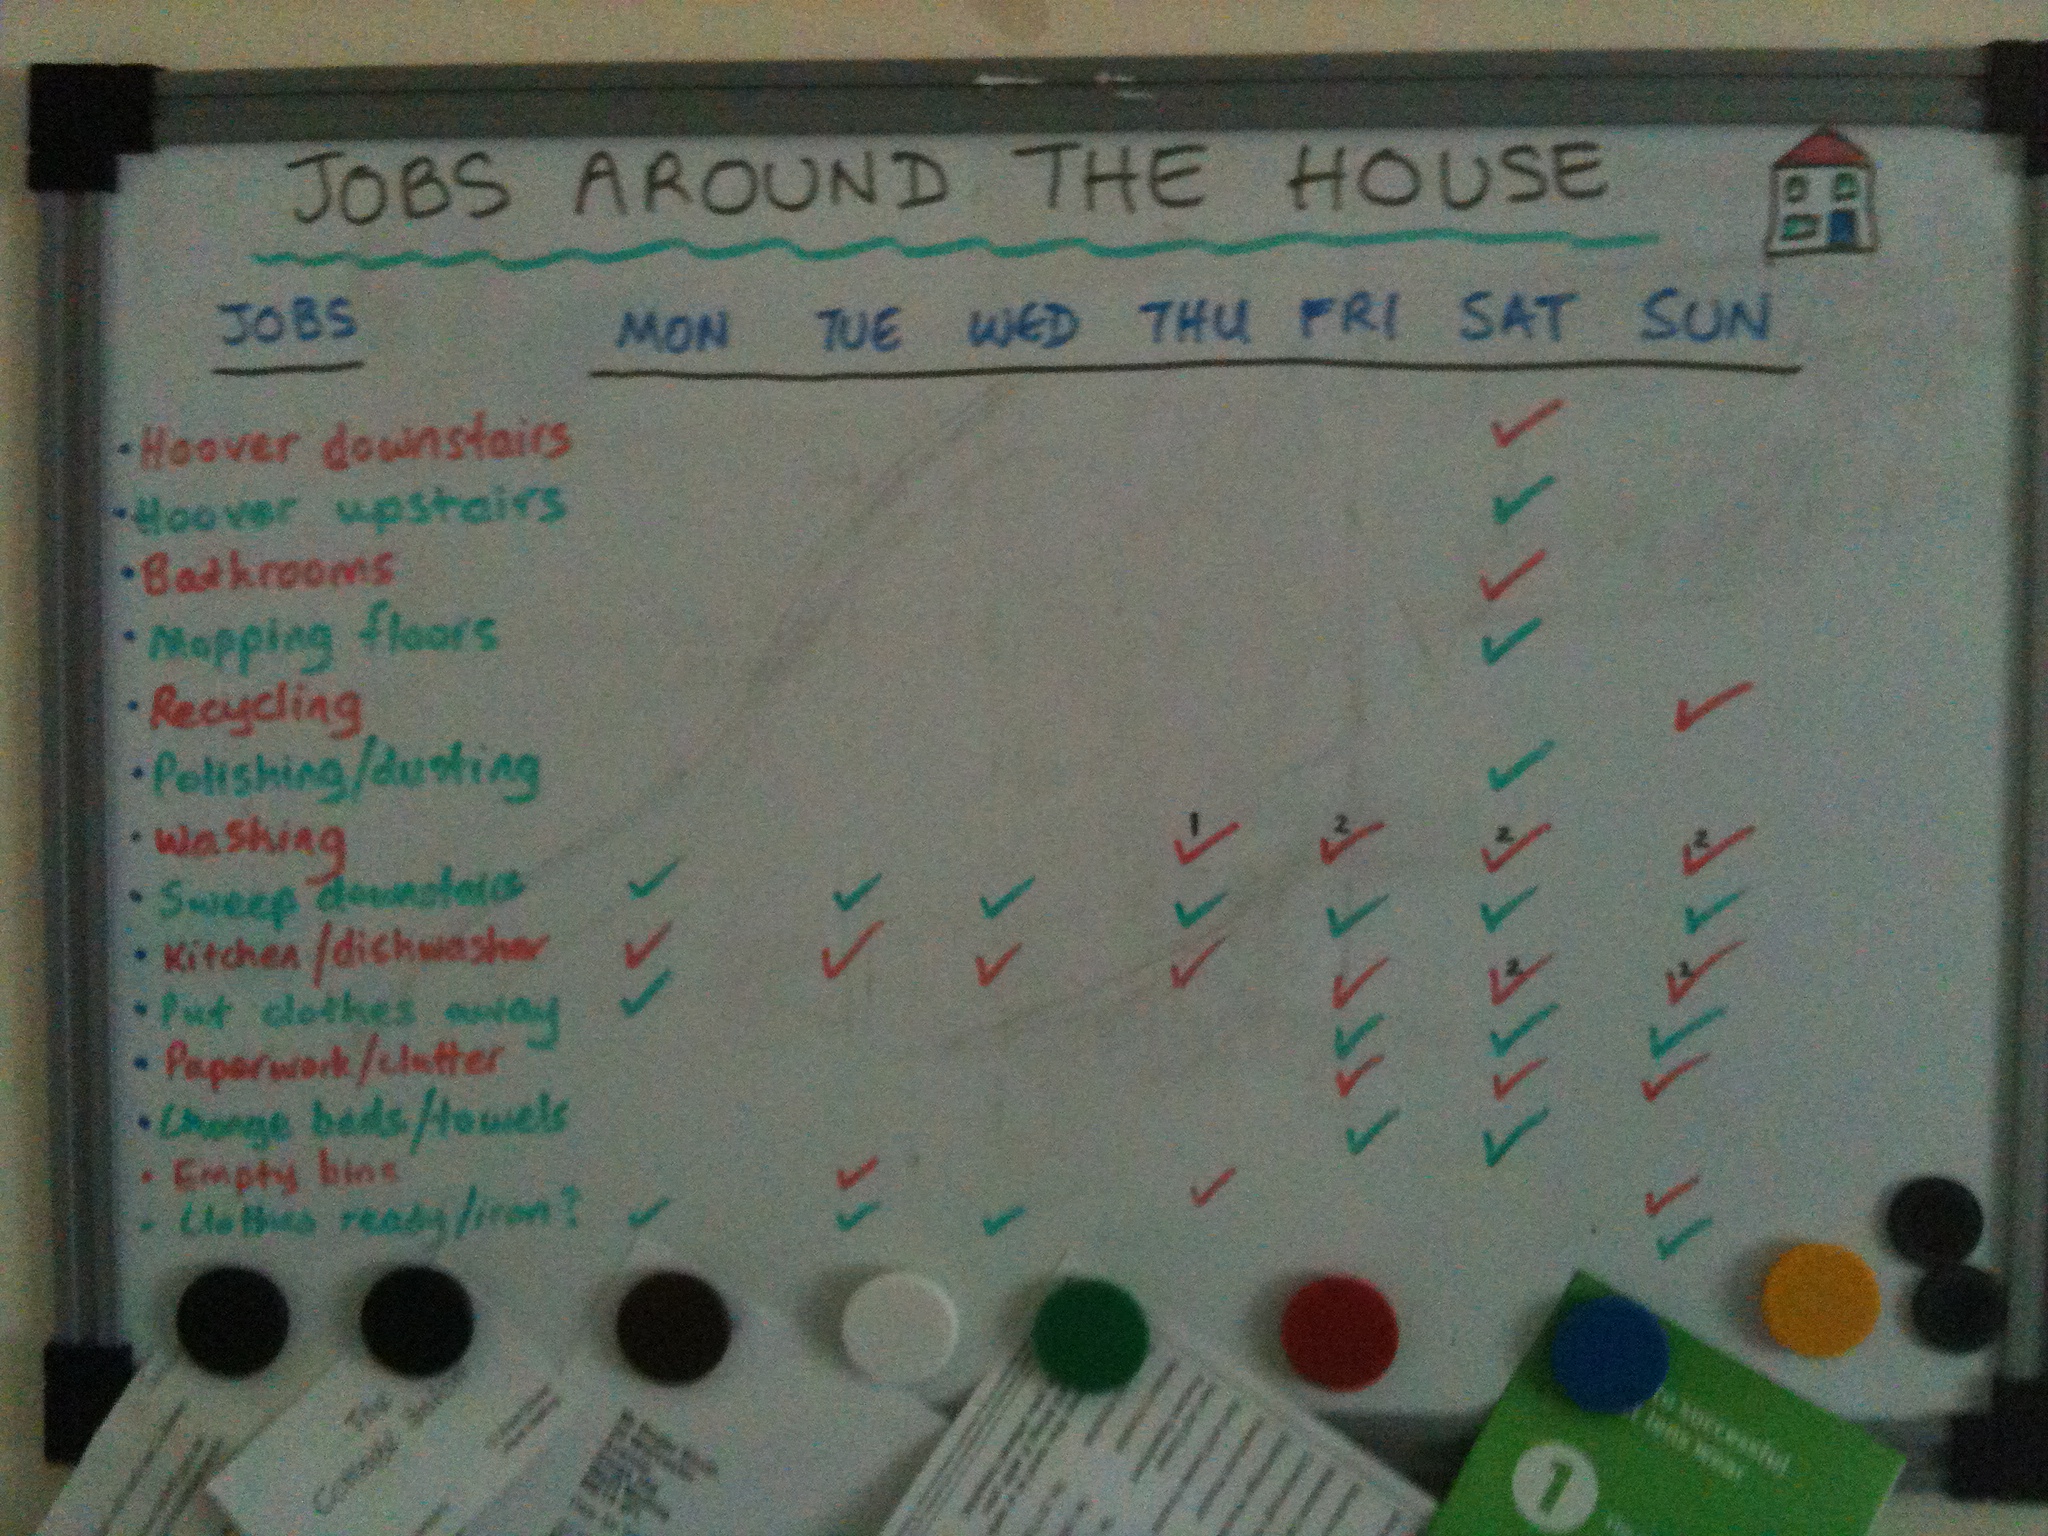 JOBS AROUND THE HOUSE
JOBS MON TUE WED THU FRI SAT SUN
• Hoover downstairs ✓
• Hoover upstairs ✓
• Bathrooms ✓
• Mopping floors ✓
• Recycling ✓
• Polishing/dusting ✓
• Washing 1 ✓ 2 ✓ 2 ✓ 2 ✓
• Sweep downstairs ✓ ✓ ✓ ✓ ✓ ✓ ✓
• Kitchen/dishwasher ✓ ✓ ✓ ✓ ✓ 2 ✓ 2 ✓
• Put clothes away ✓ ✓ ✓ ✓
• Paperwork/clutter ✓ ✓ ✓
• Change beds/towels ✓ ✓
• Empty bins ✓ ✓ ✓
• Clothes ready/iron? ✓ ✓ ✓ ✓
The
to successful
lens wear
1